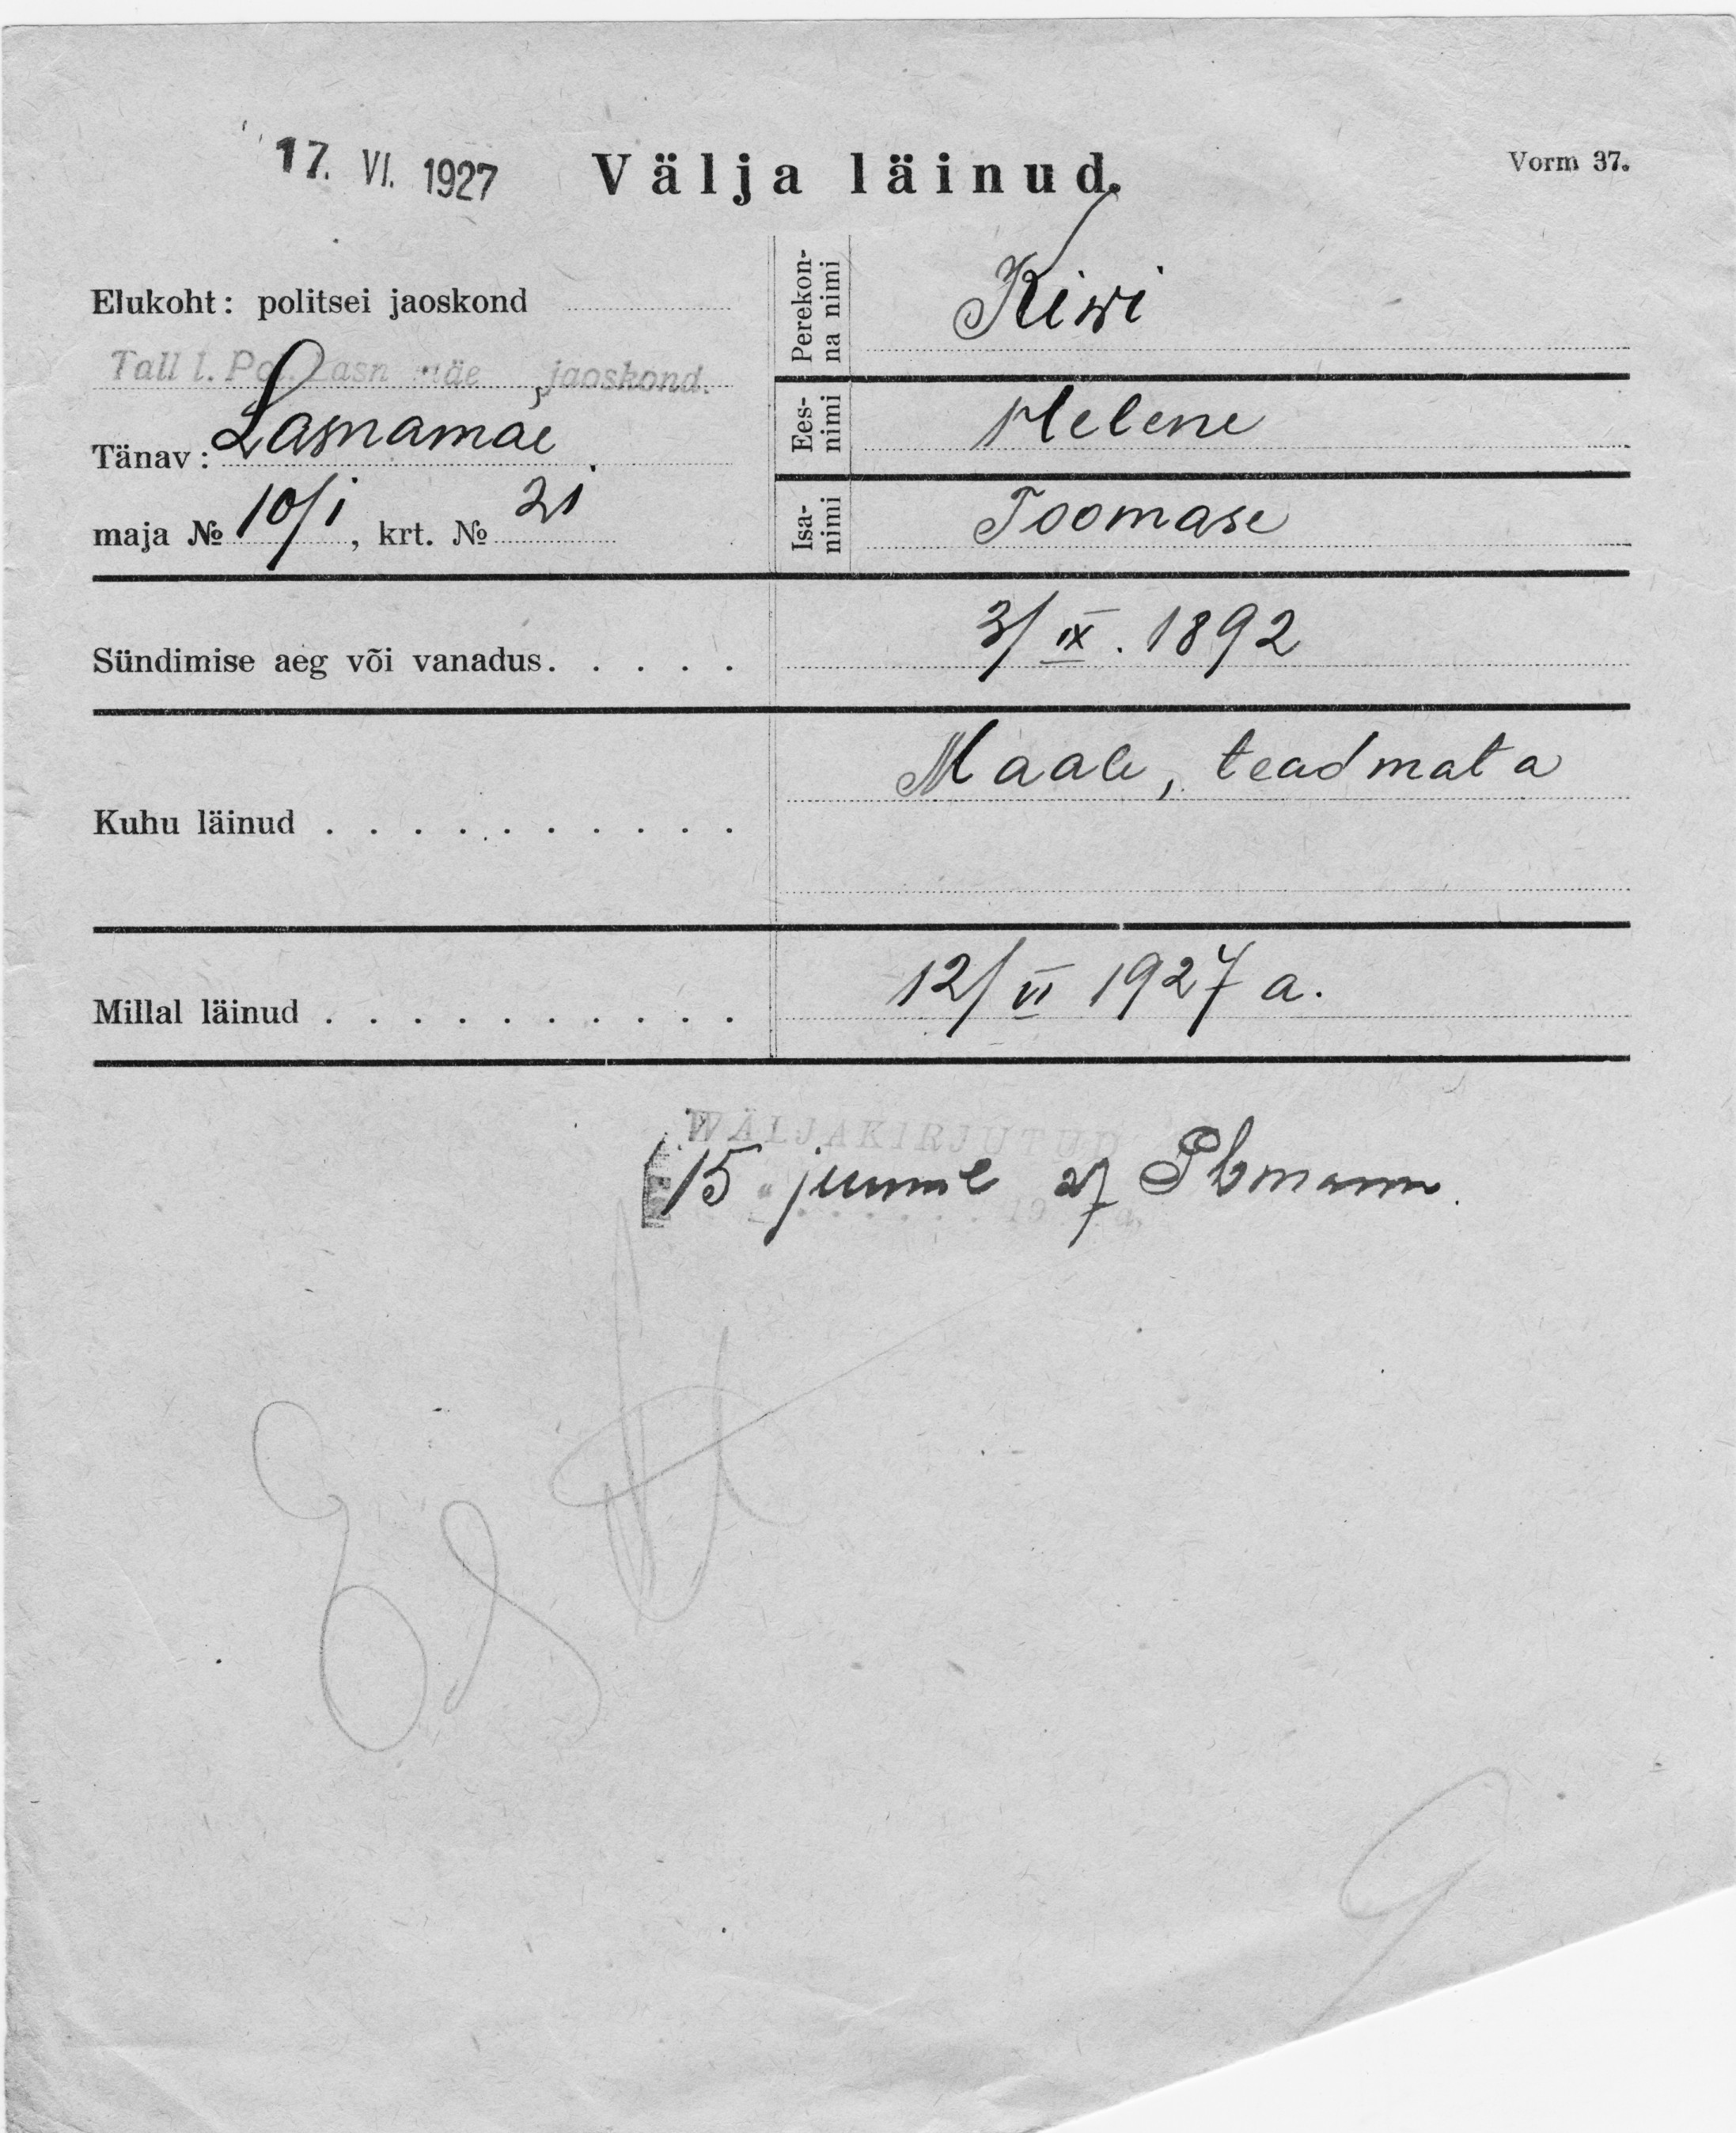 17. VI. 1927
Välja läinud.
Vorm 37.
Elukoht: politsei jaoskond
Tall l. Pol. Lasn mäe jaoskond.
Tänav: Lasnamäe
maja № 10/1, krt. № 21
Perekonna nimi
Kiwi
Eesnimi
Helene
Isanimi
Toomase
Sündimise aeg või vanadus. . . . .
3/IX. 1892
Kuhu läinud . . . . . . . . . .
Maale, teadmata
Millal läinud . . . . . . . . . .
12/VI 1927 a.
WÄLJAKIRJUTUD
15 juunil 27
19 a.
Est